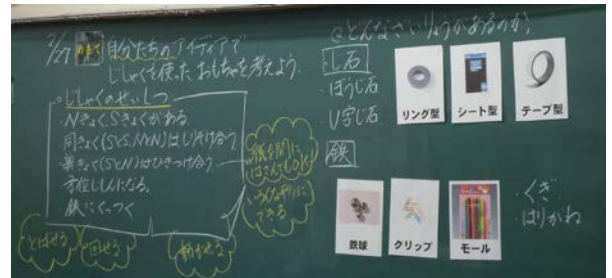 自分たちのアイディアで
じしゃくを使った おもちゃを考えよう.
・じしゃくのせいしつ
・Nきょく、Sきょくがある.
同きょく(SとS、NとN)はしりぞけ合う
異きょく(SとN)はひきつけ合う
方位じしんになる.
鉄にくっつく
紙を間に
はさんでもOK
できる
とばせる
回せる
動かせる
@どんなざいりょうがあるのか?
じ石
・ぼうじ石
・U字じ石
リング型
シート型
テープ型
鉄
鉄球
クリップ
モール
・くぎ
・はりがね